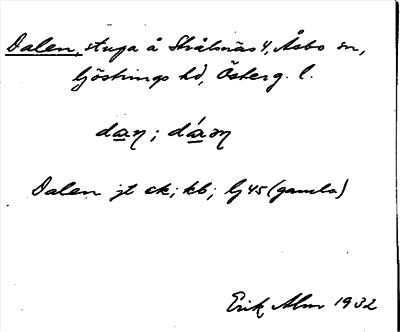 Dalen, stuga å Strålsnäs 4, Åsbo sn,
Göstrings hd, Österg. l.
Dalen jt ck; kb; Gj 45 (gamla)
Erik Alm 1932